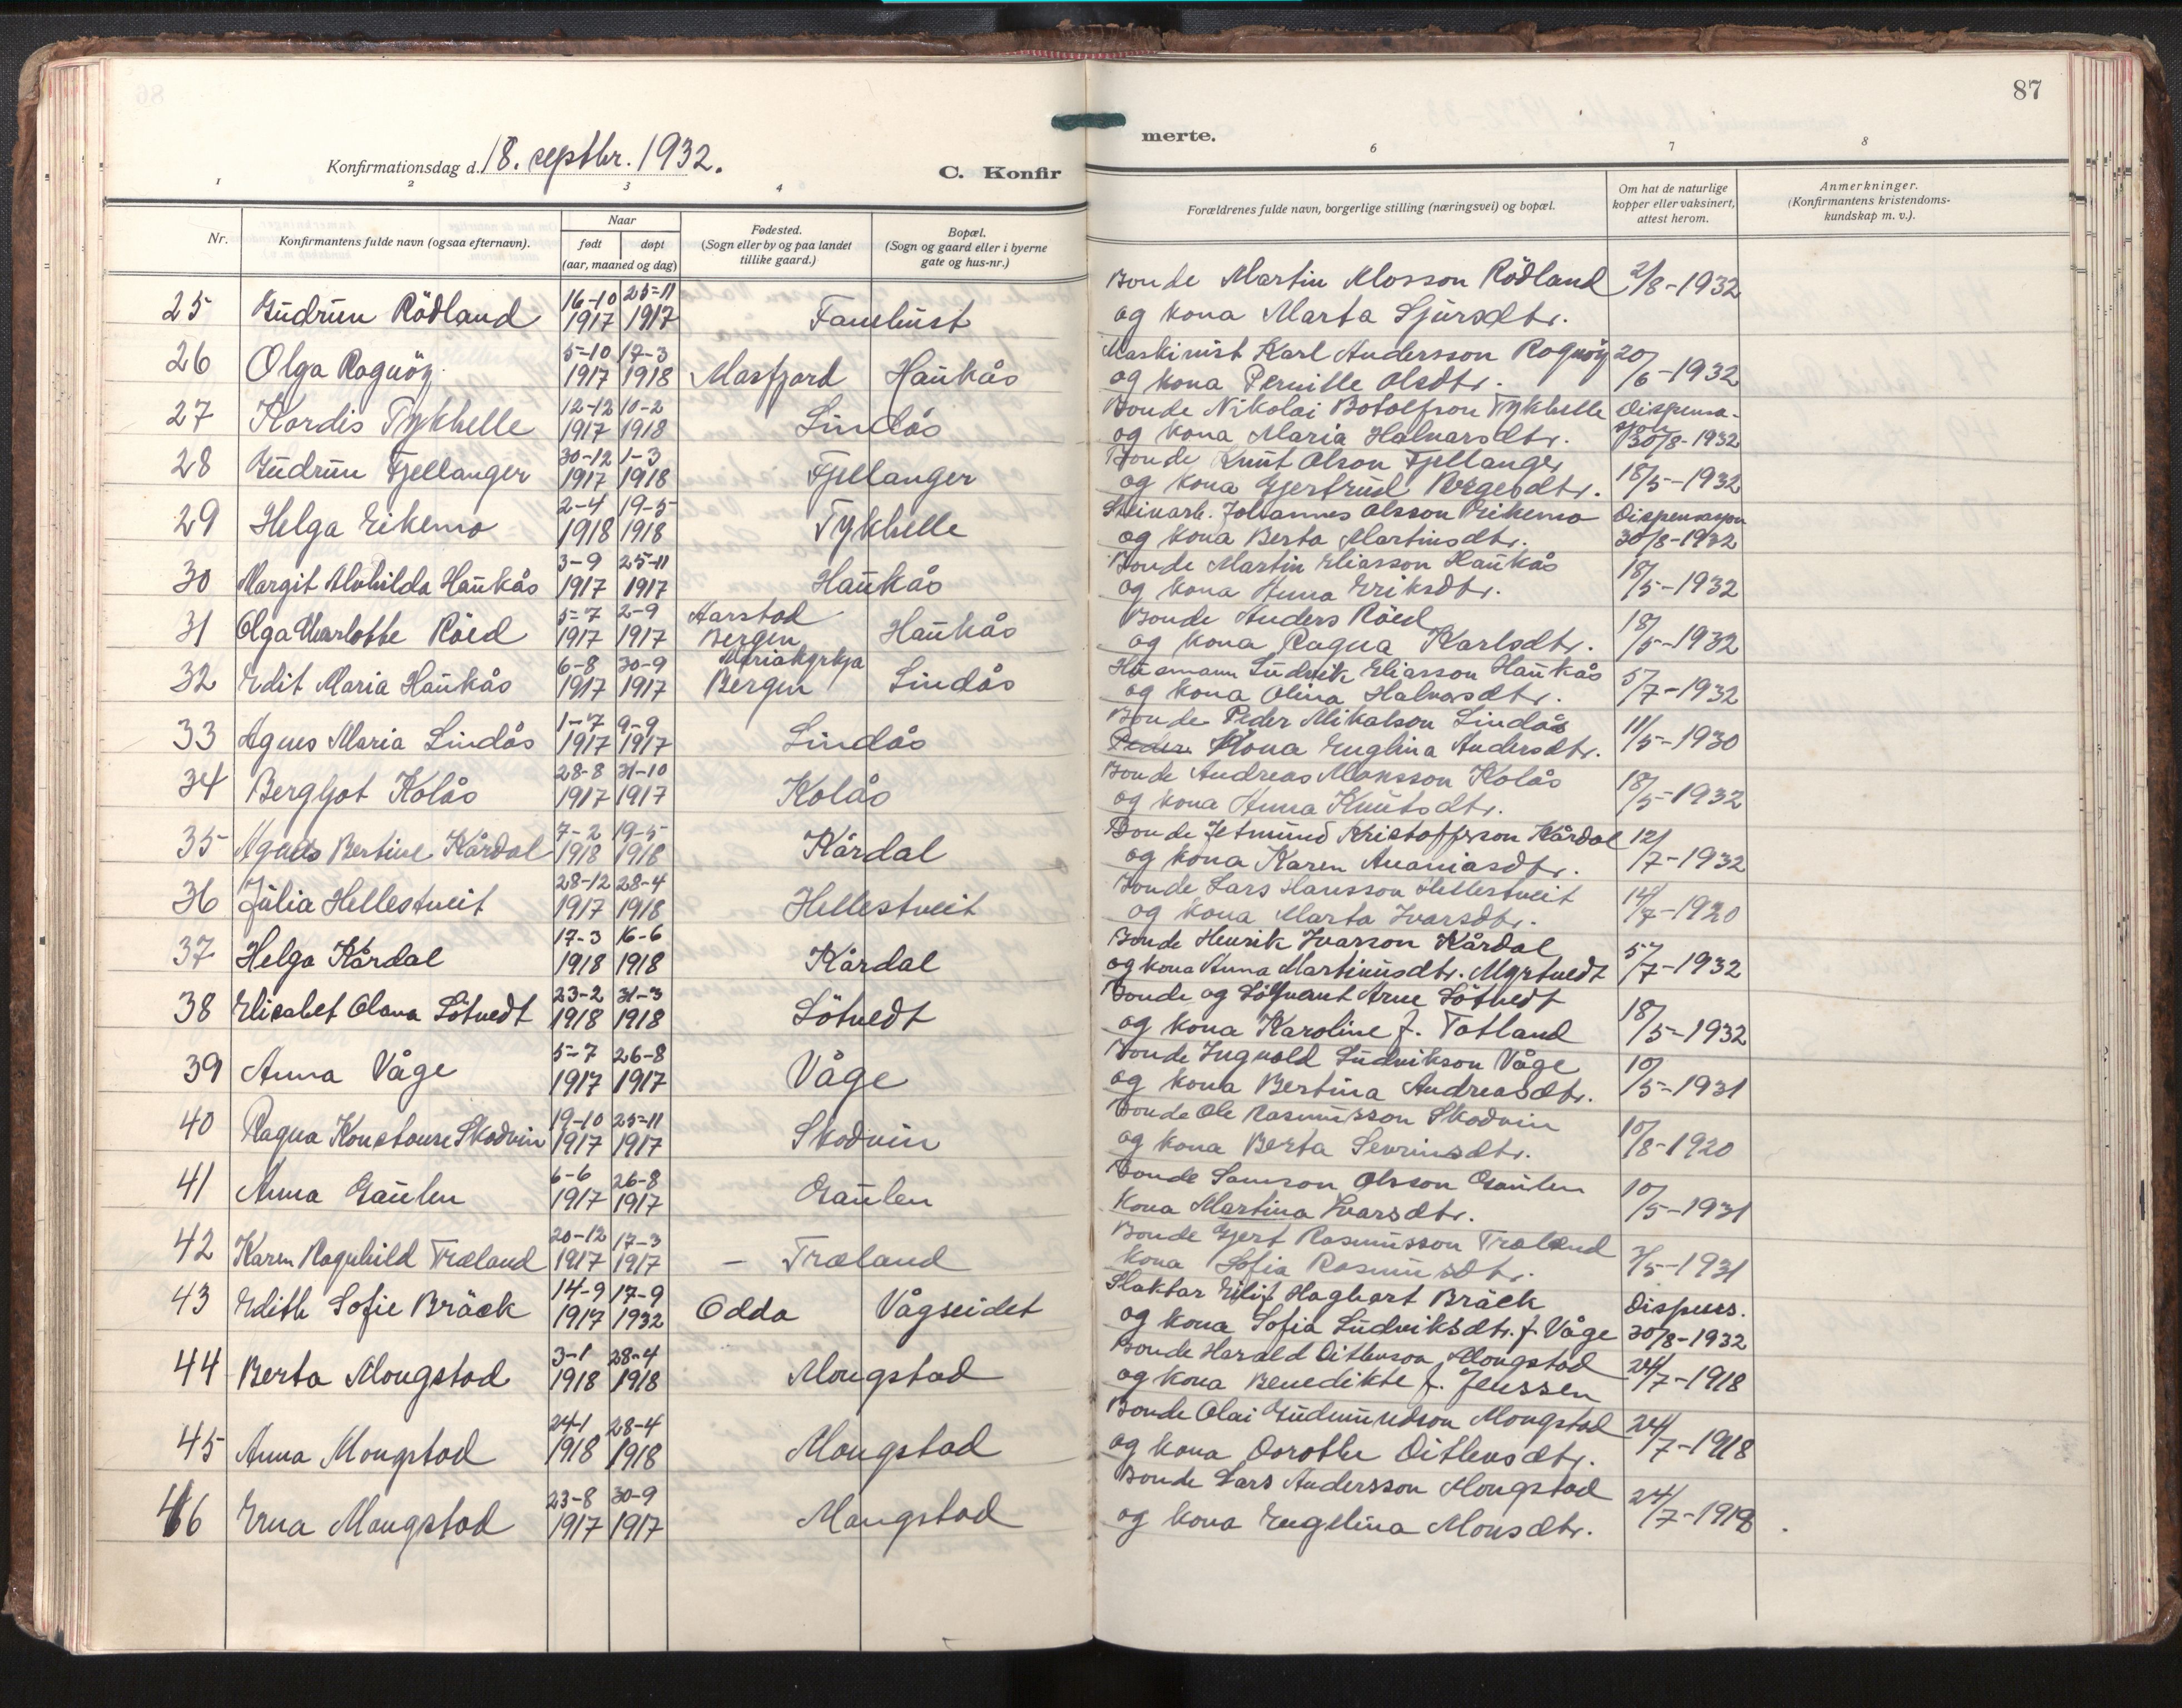 87
Konfirmationsdag d. 18. septbr. 1932.
C. Konfir
merte.
1
2
3
4
6
7
8
Nr.
Konfirmantens fulde navn (ogsaa efternavn).
Naar
født
døpt
(aar, maaned og dag)
Fødested.
(Sogn eller by og paa landet
tillike gaard.)
Bopæl.
(Sogn og gaard eller i byerne
gate og hus-nr.)
Forældrenes fulde navn, borgerlige stilling (næringsvei) og bopæl.
Om hat de naturlige
kopper eller vaksinert,
attest herom.
Anmerkninger.
(Konfirmantens kristendoms-
kundskap m. v.).
25 Gudrun Rödland 16-10 1917 25-11 1917 Fanehust
Bonde Martin Monsson Rödland 2/8-1932
og kona Marta Sjursdtr.
26 Olga Ragnöy 5-10 1917 17-3 1918 Masfjord Haukås
Maskinist Karl Andersson Ragnöy 20/6-1932
og kona Pernille Olsdtr.
27 Hordis Tykhelle 12-12 1917 10-2 1918 Lindås
Bonde Nikolai Botolfson Tykhelle Dispensa-
og kona Maria Halvarsdtr. sjon 30/8-1932
28 Gudrun Fjellanger 30-12 1917 1-3 1918 Fjellanger
Bonde Knut Olson Fjellanger
og kona Gjertrud Børgesdtr. 18/5-1932
29 Helga Eikemo 2-4 1918 19-5 1918 Tykhelle
Steinarb. Johannes Olsson Eikemo Dispensasjon
og kona Berta Martinsdtr. 30/8-1932
30 Margit Alvhilda Haukås 3-9 1917 25-11 1917 Haukås
Bonde Martin Eliasson Haukås
og kona Anna Eriksdtr. 18/5-1932
31 Olga Charlotte Röed 5-7 1917 2-9 1917 Aarstad Bergen Haukås
Bonde Anders Röed
og kona Ragna Karlsdtr. 18/5-1932
32 Edit Maria Haukås 6-8 1917 30-9 1917 Mariakyrkja Bergen Lindås
Husmann Ludvik Eliasson Haukås
og kona Olina Halvarsdtr. 5/7-1932
33 Agnes Maria Lindås 1-7 1917 9-9 1917 Lindås
Bonde Peder Mikalson Lindås
Peder Kona Englina Andersdtr. 11/5-1930
34 Bergljot Kolås 28-8 1917 31-10 1917 Kolås
Bonde Andreas Monsson Kolås
og kona Anna Knutsdtr. 18/5-1932
35 Agnes Bertine Kårdal 7-2 1918 19-5 1918 Kårdal
Bonde Jetmund Kristofferson Kårdal
og kona Karen Ananiasdtr. 12/7-1932
36 Julia Hellestveit 28-12 1917 28-4 1918 Hellestveit
Bonde Lars Hansson Hellestveit
og kona Marta Ivarsdtr. 14/7-1920
37 Helga Kårdal 17-3 1918 16-6 1918 Kårdal
Bonde Henrik Ivarson Kårdal
og kona Anna Martinusdtr. Myrtvedt 5/7-1932
38 Elisabet Olava Lötvedt 23-2 1918 31-3 1918 Lötvedt
Bonde og Arne Lötvedt
og kona Karoline f. Totland 18/5-1932
39 Anna Våge 5-7 1917 26-8 1917 Våge
Bonde Ingvald Ludvikson Våge
og kona Bertina Andreasdtr. 10/5-1931
40 Ragna Konstanse Skodvin 19-10 1917 25-11 1917 Skodvin
Bonde Ole Rasmusson Skodvin
og kona Berta Sevrinsdtr. 10/8-1920
41 Anna Gaulen 6-6 1917 26-8 1917 Gaulen
Bonde Samson Olsson Gaulen
Kona Martina Ivarsdtr. 10/5-1931
42 Karen Ragnhild Træland 20-12 1917 17-3 1917 - Træland
Bonde Gjert Rasmusson Træland
Kona Sofia Rasmusdtr. 31/5-1931
43 Edith Sofie Bräck 14-9 1917 17-9 1932 Odda Vågseidet
Slaktar Eilif Hagbart Bräck Dispens.
og kona Sofia Ludviksdtr. f. Våge 30/8-1932
44 Berta Mongstad 3-1 1918 28-4 1918 Mongstad
Bonde Harald Ditlevson Mongstad
og kona Benedikte f. Jenssen 24/7-1918
45 Anna Mongstad 24-1 1918 28-4 1918 Mongstad
Bonde Olai Gudmundson Mongstad
og kona Dorothe Ditlevsdtr. 24/7-1918
46 Erna Mongstad 23-8 1917 30-9 1917 Mongstad
Bonde Lars Andersson Mongstad
og kona Engelina Monsdtr. 24/7-1918